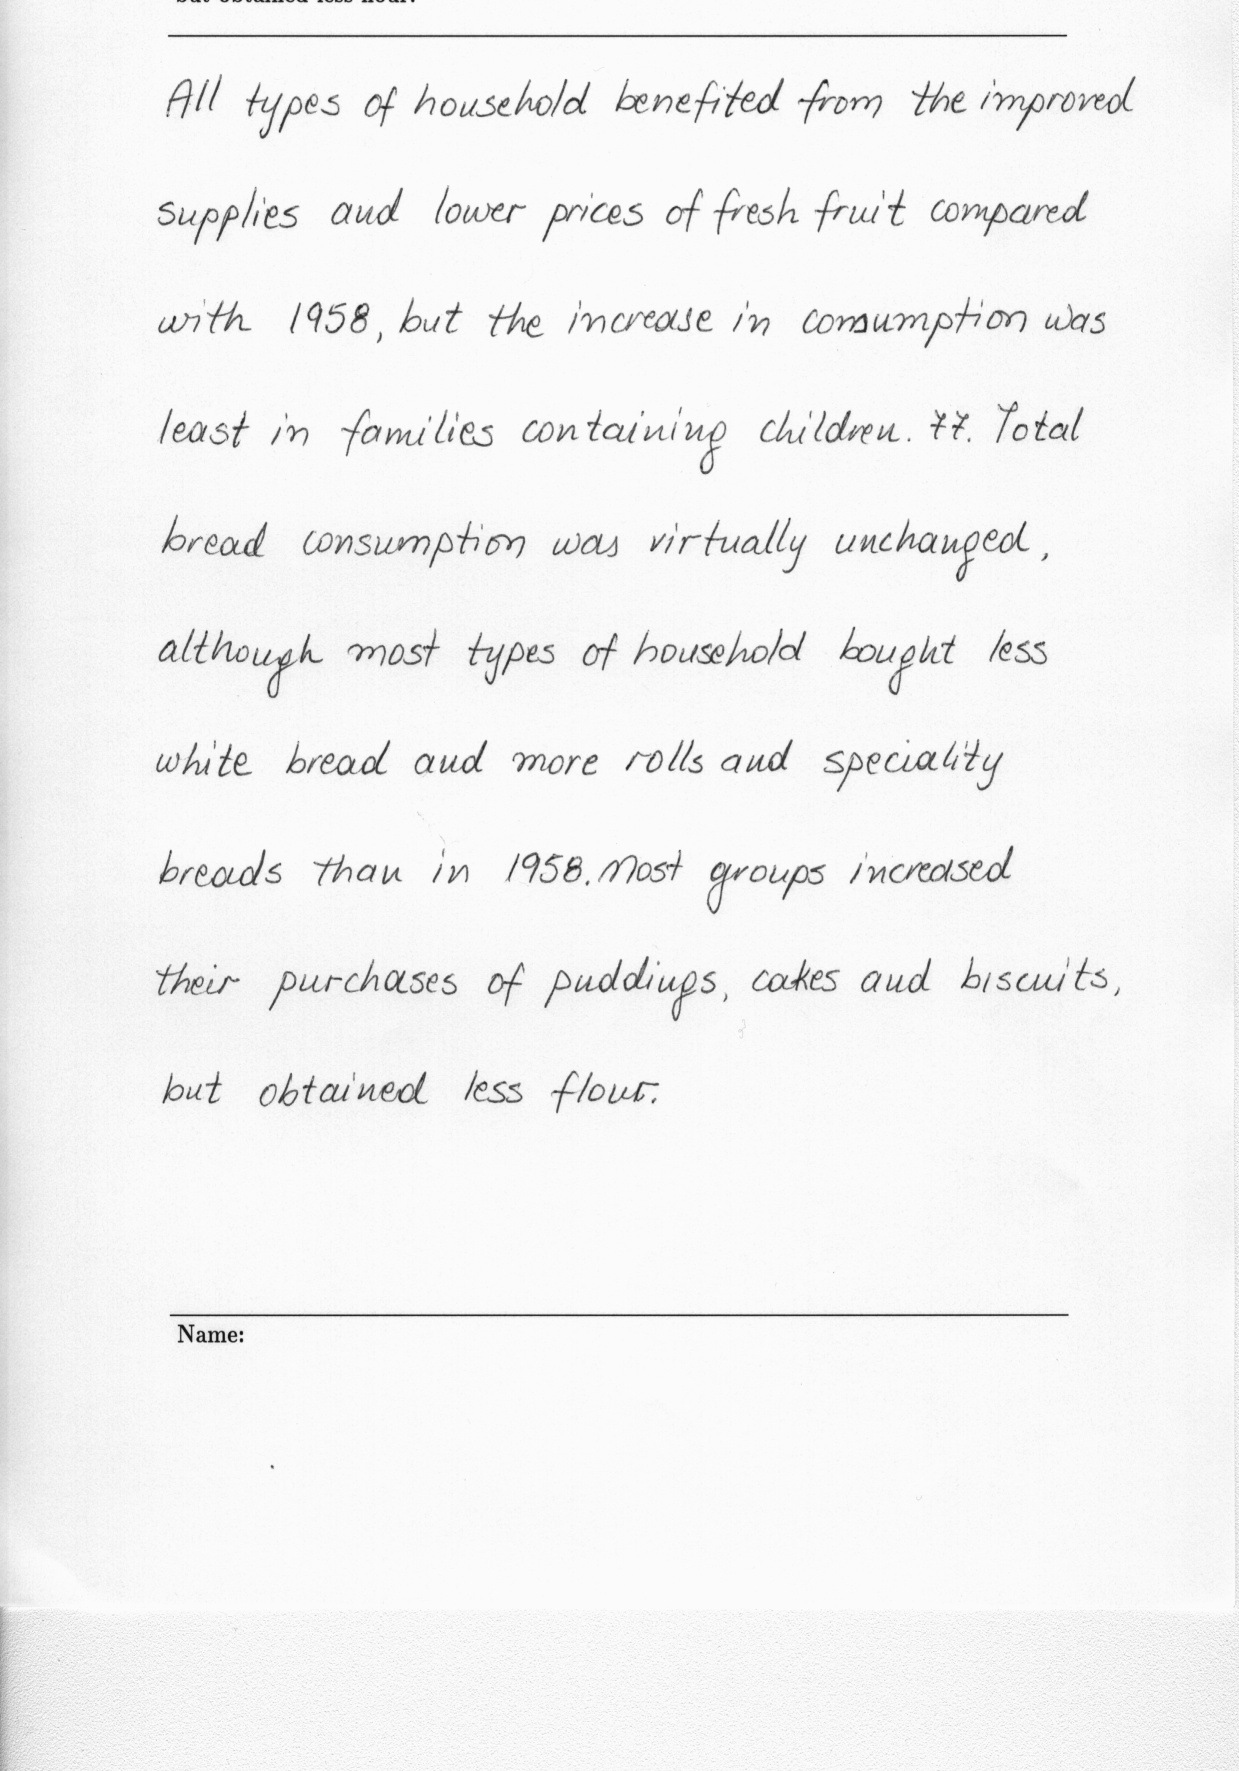 but obtained less flour.
All types of household benefited from the improved
supplies and lower prices of fresh fruit compared
with 1958, but the increase in consumption was
least in families containing children. 77. Total
bread consumption was virtually unchanged,
although most types of household bought less
white bread and more rolls and speciality
breads than in 1958. Most groups increased
their purchases of puddings, cakes and biscuits,
but obtained less flour.
Name: